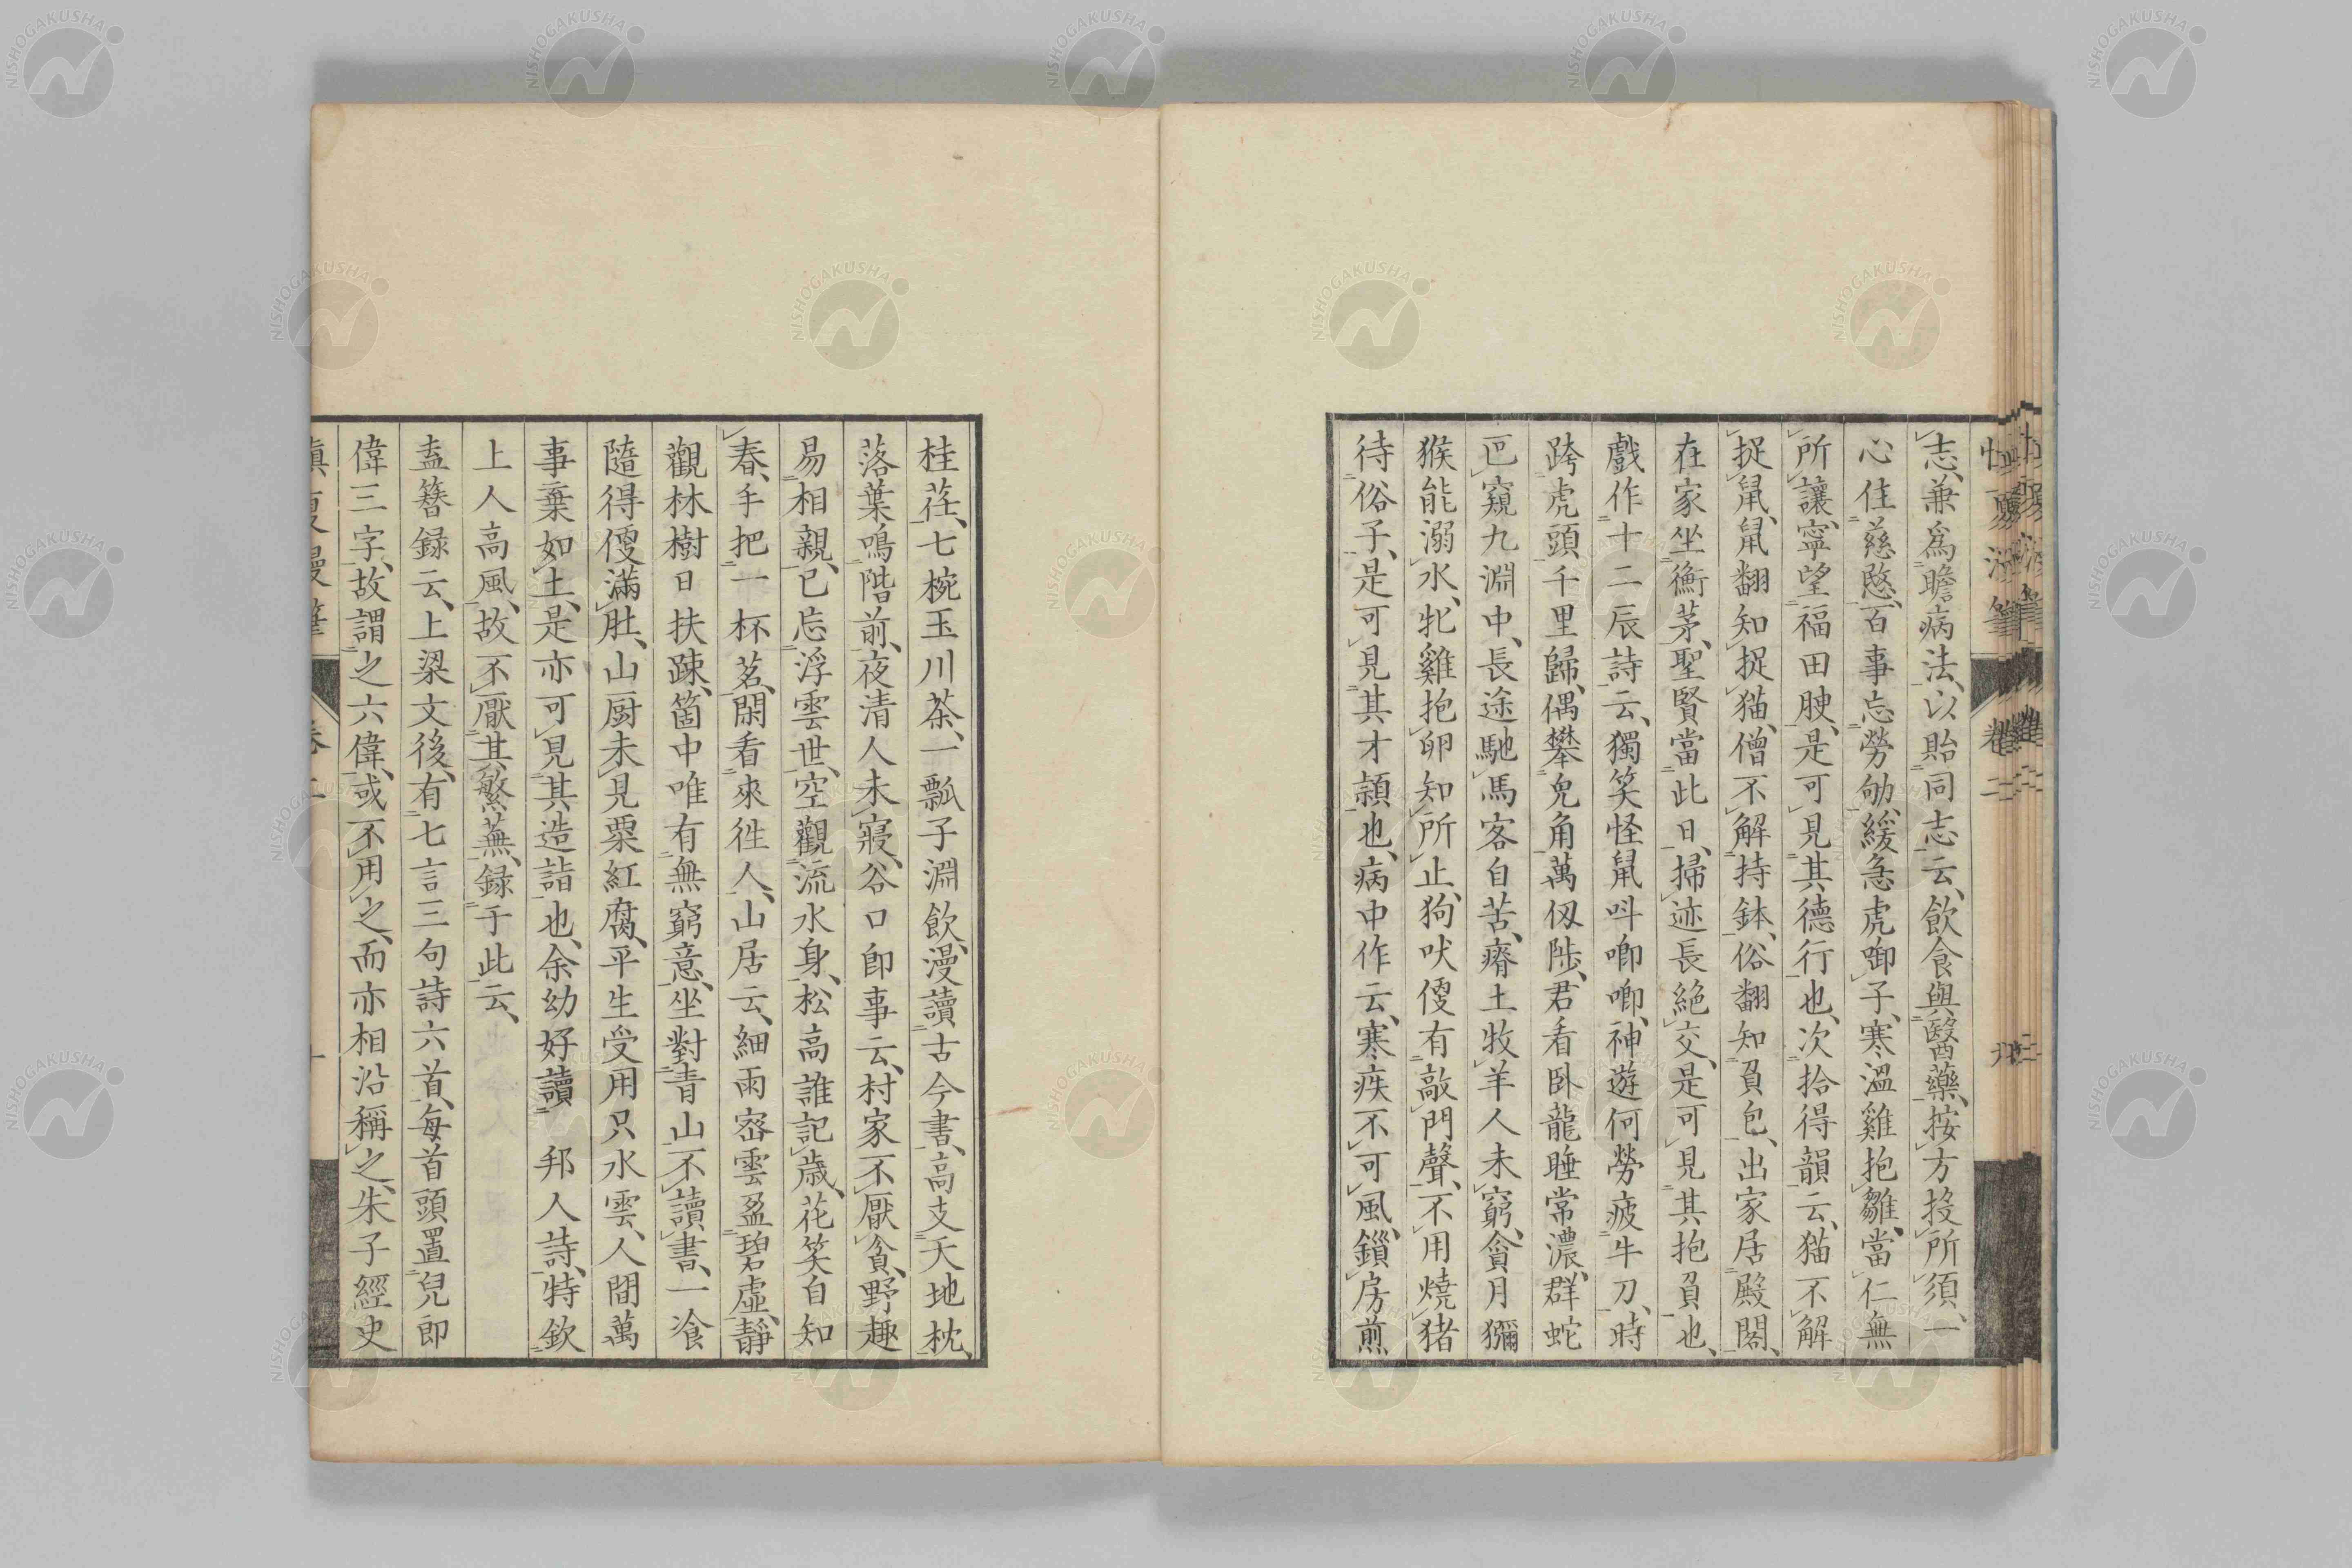 志、兼爲瞻病法、以貽同志云、飲食與醫藥、按方投所須、一
心住慈愍、百事忘勞劬、緩急虎㗸子、寒溫雞抱雛、當仁無
所讓、寧望福田腴、是可見其德行也、次拾得韻云、猫不解
捉鼠、鼠翻知捉猫、僧不解持鉢、俗翻知負包、出家居殿閣、
在家坐衡茅、聖賢當此日、掃迹長絶交、是可見其抱負也、
戲作十二辰詩云、獨笑怪鼠呌喞喞、神遊何勞疲牛刀、時
跨虎頭千里歸、偶攀兔角萬仭陟、君看臥龍睡常濃、群蛇
叵窺九淵中、長途馳馬客自苦、瘠土牧羊人未窮、貪月獼
猴能溺水、牝雞抱卵知所止、狗吠便有敲門聲、不用燒猪
待俗子、是可見其才頴也、病中作云、寒疾不可風、鎻房煎
桂荏、七椀玉川茶、一瓢子淵飲、漫讀古今書、高支天地枕、
落葉鳴階前、夜清人未寢、谷口即事云、村家不厭貧、野趣
易相親、已忘浮雲世、空觀流水身、松高誰記歳、花笑自知
春、手把一杯茗、閑看來徃人、山居云、細雨密雲盈碧虛、靜
觀林樹日扶疎、箇中唯有無窮意、坐對青山不讀書、一飡
隨得便滿肚、山厨未見粟紅腐、平生受用只水雲、人間萬
事棄如土、是亦可見其造詣也、余幼好讀 邦人詩、特欽
上人高風、故不厭其繁蕪、録于此云、
盍簪録云、上梁文後、有七言三句詩六首、每首頭置兒郎
偉三字、故謂之六偉、或不用之、而亦相沿稱之、朱子經史
卷二
卷二
九